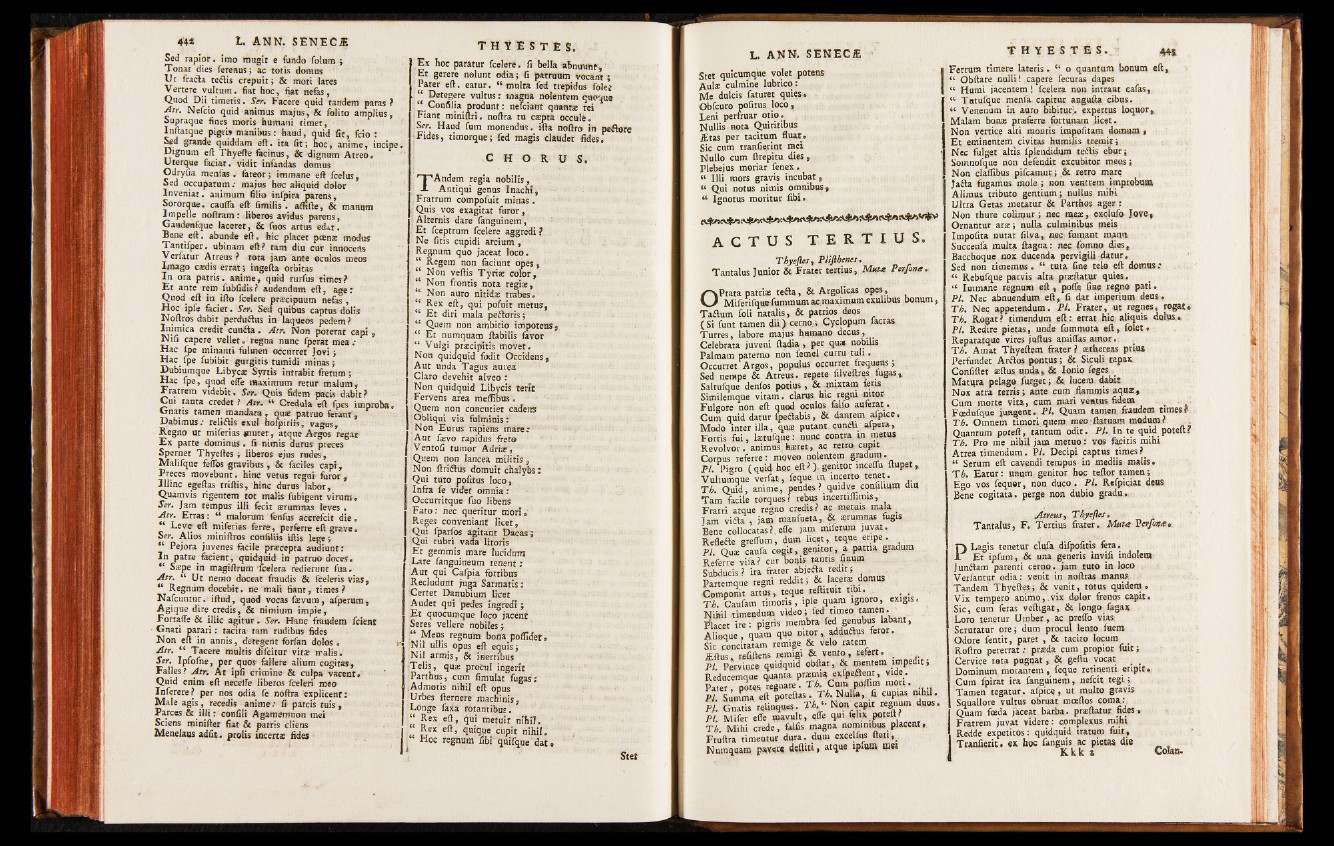 442 L. ANN. SENECÆ
Sed rapior. imo mugit e fundo ſolum ;
Tonat dies ſerenus; ac totis domus
Ut fracta tectis crepuit; & moti lares
Vertere vultum. fiat hoc, fiat nefas,
Quod Dii timetis. Ser. Facere quid tandem paras ?
Atr. Neſcio quid animus majus, & ſolito amplius,
Supraque fines moris humani timet,
Inſtatque pigris manibus: haud, quid ſit, ſcio :
Sed grande quiddam eſt. ita ſit; hoc, anime, incipe.
Dignum eſt Thyeſte facinus, & dignum Atreo.
Uterque faciat. vidit infandas domus
Odryſia menſas. fateor; immane eſt ſcelus,
Sed occupatum: majus hoc aliquid dolor
Inveniat. animum filio inſpira parens,
Sororque. cauſſa eſt ſimilis. aſſiſte, & manum
Impelle noſtram: liberos avidus parens,
Gaudenſque laceret, & ſuos artus edat.
Bene eſt. abunde eſt. hic placet pœnæ modus
Tantiſper. ubinam eſt? tam diu cur innocens
Verſatur Atreus ? tota jam ante oculos meos
Imago cædis errat; ingeſta orbitas
In ora patris. anime, quid rurſus times?
Et ante rem ſubſidis? audendum eſt, age:
Quod eſt in iſto ſcelere præcipuum nefas,
Hoc ipſe faciet. Ser. Sed quibus captus dolis
Noſtros dabit perductus in laqueos pedem?
Inimica credit cuncta. Atr. Non poterat capi,
Niſi capere vellet. regna nunc ſperat mea:
Hac ſpe minanti fulmen occurret Jovi;
Hac ſpe ſubibit gurgitis tumidi minas;
Dubiumque Libycæ Syrtis intrabit fretum;
Hac ſpe, quod eſſe maximum retur malum,
Fratrem videbit. Ser. Quis fidem pacis dabit?
Cui tanta credet ? Atr. “ Credula eſt ſpes improba.
Gnatis tamen mandata, quæ patruo ferant,
Dabimus: relictis exul hoſpitiis, vagus,
Regno ut miſerias mutet, atque Argos regat
Ex parte dominus. ſi nimis durus preces
Spernet Thyeſtes; liberos ejus rudes,
Maliſque feſſos gravibus, & faciles capi,
Preces movebunt. hinc vetus regni furor,
Illinc egeſtas triſtis, hinc durus labor,
Quamvis rigentem tot malis ſubigent virum.
Ser. Jam tempus illi fecit ærumnas leves.
Atr. Erras: “ malorum ſenſus accreſcit die.
“ Leve eſt miſerias ferre, perferre eſt grave.
Ser. Alios miniſtros conſiliis iſtis lege;
“ Pejora juvenes facile præcepta audiunt:
In patre facient, quidquid in patruo doces.
“ Sæpe in magiſtrum ſcelera redierunt ſua.
Atr. “ Ut nemo doceat fraudis & ſceleris vias,
“ Regnum docebit. ne mali fiant, times ?
Naſcuntur. iſtud, quod vocas ſævum, aſperum,
Agique dire credis, & nimium impie,
Fortaſſe & illic agitur. Ser. Hanc fraudem ſcient
Gnati parari: tacita tam rudibus fides
Non eſt in annis, detegent forſan dolos.
Atr. “ Tacere multis diſcitur vitæ malis.
Ser. Ipſoſne, per quos fallere alium cogitas,
Falles? Atr. At ipſi crimine & culpa vacent.
Quid enim eſt neceſſe liberos ſceleri meo
Inſerere? per nos odia ſe noſtra explicent:
Male agis, recedis anime: ſi parcis tuis,
Parces & illi: conſili Agamemnon mei
Sciens miniſter fiat & patris cliens
Menelaus adſit. prolis incertæ fides
THYESTES.
Ex hoc paratur ſcelere. ſi bella abnuunt,
Et gerere nolunt odia; ſi patruum vocant;
Pater eſt. eatur. “ multa ſed trepidus ſolet
“ Detegere vultus: magna nolentem quoque
“ Conſilia produnt: neſciant quantæ rei
Fiant miniſtri. noſtra tu cœpta occule.
Ser. Haud ſum monendus. iſta noſtro in pectore
Fides, timorque; ſed magis claudet fides.
CHORUS.
TAndem regia nobilis,
Antiqui genus Inachi,
Fratrum compoſuit minas.
Quis vos exagitat furor,
Alternis dare ſanguinem,
Et ſceptrum ſcelere aggredi?
Ne ſitis cupidi arcium,
Regnum quo jaceat loco.
“ Regem non faciunt opes,
“ Non veſtis Tyriæ color,
“ Non frontis nota regiæ,
“ Non auro nitidæ trabes.
“ Rex eſt, qui poſuit metus,
“ Et diri mala pectoris;
“ Quem non ambitio impotens,
“ Et numquam ſtabilis favor
“ Vulgi præcipitis movet.
Non quidquid fodit Occidens,
Aut unda Tagus aurea
Claro devehit alveo:
Non quidquid Libycis terit
Fervens area meſſibus.
Quem non concutiet cadens
Obliqui via fulminis:
Non Eurus rapiens mare:
Aut ſævo rapidus freto
Ventoſi tumor Adriæ,
Quem non lancea militis,
Non ſtrictus domuit chalybs:
Qui tuto poſitus loco,
Infra ſe videt omnia:
Occurritque ſuo libens
Fato: nec queritur mori.
Reges conveniant licet,
Qui ſparſos agitant Dacas;
Qui rubri vada litoris
Et gemmis mare lucidum
Late ſanguineum tenent:
Aut qui Caſpia fortibus
Recludunt juga Sarmatis:
Certet Danubium licet
Audet qui pedes ingredi;
Et quocumque loco jacent
Seres vellere nobiles;
“ Meus regnum bona poſſidet,
Nil ullis opus eſt equis;
Nil armis, & inertibus
Telis, quæ procul ingerit
Parthus, cum ſimulat fugas:
Admotis nihil eſt opus
Urbes ſternere machinis,
Longe ſaxa rotantibus.
“ Rex eſt, qui metuit nihil.
“ Rex eſt, quique cupit nihil.
“ Hoc regnum ſibi quiſque dat.
Stet
L. ANN. SENECÆ
Stet quicumque volet potens
Aulæ culmine lubrico:
Me dulcis ſaturet quies.
Obſcuro poſitus loco,
Leni perfruar otio.
Nullis nota Quiritibus
Ætas per tacitum fluat.
Sic cum tranſierint mei
Nullo cum ſtrepitu dies,
Plebejus moriar ſenex.
“ Illi mors gravis incubat,
“ Qui notus nimis omnibus,
“ Ignotus moritur ſibi.
ACTUS TERTIUS.
Thyeſtes, Pliſthenes.
Tantalus Junior & Frater tertius, Mutæ Perſonæ.
OPtata patriæ tecta, & Argolicas opes,
Miſeriſque ſummum ac maximum exulibus bonum,
Tactum ſoli natalis, & patrios deos
(Si ſunt tamen dii) cerno; Cyclopum ſacras
Turres, labore majus humano decus,
Celebrata juveni ſtadia, per quæ nobilis
Palmam paterno non ſemel curru tuli.
Occurret Argos, populus occurret frequens;
Sed nempe & Atreus. repete ſilveſtres fugas,
Saltuſque denſos potius, & mixtam feris
Similemque vitam. clarus hic regni nitor
Fulgore non eſt quod oculos falſo auferat.
Cum quid datur ſpectabis, & dantem aſpice.
Modo inter illa, quæ putant cuncti aſpera,
Fortis fui, lætuſque: nunc contra in metus
Revolvor. animus hæret, ac retro cupit
Corpus referre: moveo nolentem gradum.
Pl. Pigro (quid hoc eſt?) genitor inceſſu ſtupet,
Vultumque verſat, ſeque in incerto tenet.
Th. Quid, anime, pendes? quidve conſilium diu
Tam facile torques? rebus incertiſſimis,
Fratri atque regno credis? ac metuis mala
Jam victa, jam manſueta, & ærumnas fugis
Bene collocatas? eſſe jam miſerum juvat.
Reflecte greſſum, dum licet, teque eripe.
Pl. Quæ cauſa cogit, genitor, a patria gradum
Referre viſa? cur bonis tantis ſinum
Subducis? ira frater abjecta redit;
Partemque regni reddit; & laceræ domus
Componit artus, teque reſtituit tibi.
Th. Cauſam timoris, ipſe quam ignoro, exigis.
Nihil timendum video; ſed timeo tamen.
Placet ire: pigris membra ſed genubus labant,
Alioque, quam quo nitor, adductus feror.
Sic concitatam remige & velo ratem
Æſtus, reſiſtens remigi & vento, refert.
Pl. Pervince quidquid obſtat, & mentem impedit;
Reducemque quanta præmia exſpectent, vide.
Pater, potes regnare. Th. Cum poſſim mori.
Pl. Summa eſt poteſtas. Th. Nulla, ſi cupias nihil.
Pl. Gnatis relinques. Th. “ Non capit regnum duos.
Pl. Miſer eſſe mavult, eſſe qui felix poteſt?
Th. Mihi crede, falſis magna nominibus placent,
Fruſtra timentur dura. dum excelſus ſteti,
Numquam pavere deſtiti, atque ipſum mei
THYESTES. 443
Ferrum timere lateris. “ o quantum bonum eſt,
“ Obſtare nulli! capere ſecuras dapes
“ Humi jacentem! ſcelera non intrant caſas,
“ Tutuſque menſa capitur anguſta cibus.
“ Venenum in auro bibitur, expertus loquor,
Malam bonæ præferre fortunam licet.
Non vertice alti montis impoſitam domum,
Et eminentem civitas humilis tremit;
Nec fulget altis ſplendidum tectis ebur;
Somnoſque non defendit excubitor meos;
Non claſſibus piſcamur; & retro mare
Jacta fugamus mole; non ventrem improbum
Alimus tributo gentium; nullus mihi
Ultra Getas metatur & Parthos ager:
Non thure colimur; nec meæ, excluſo Jove,
Ornantur aræ; nulla culminibus meis
Impoſita nutat ſilva, nec fumant manu
Succenſa multa ſtagna: nec ſomno dies,
Bacchoque nox ducenda pervigili datur.
Sed non timemus. “ tuta ſine telo eſt domus:
“ Rebuſque parvis alta præſtatur quies.
“ Immane regnum eſt, poſſe ſine regno pati.
Pl. Nec abnuendum eſt, ſi dat imperium deus.
Th. Nec appetendum. Pl. Frater, ut regnes, rogat.
Th. Rogat? timendum eſt: errat hic aliquis dolus.
Pl. Redire pietas, unde ſummota eſt, ſolet.
Reparatque vires juſtus amiſſas amor.
Th. Amat Thyeſtem frater? æthereas prius
Perfundet Arctos pontus; & Siculi rapax
Conſiſtet æſtus unda, & Ionio ſeges
Matura pelago ſurget; & lucem dabit
Nox atra terris; ante cum flammis aquæ,
Cum morte vita, cum mari ventus fidem
Fœduſque jungent. Pl. Quam tamen fraudem times?
Th. Omnem timori quem meo ſtatuam modum?
Quantum poteſt, tantum odit. Pl. In te quid poteſt?
Th. Pro me nihil jam metuo: vos facitis mihi
Atrea timendum. Pl. Decipi captus times?
“ Serum eſt cavendi tempus in mediis malis.
Th. Eatur: unum genitor hoc teſtor tamen;
Ego vos ſequor, non duco. Pl. Reſpiciat deus
Bene cogitata. perge non dubio gradu.
Atreus, Thyeſtes.
Tantalus, F. Tertius frater. Mutæ Perſonæ.
PLagis tenetur cluſa diſpoſitis fera.
Et ipſum, & una generis inviſi indolem
Junctam parenti cerno. jam tuto in loco
Verſantur odia: venit in noſtras manus
Tandem Thyeſtes; & venit, totus quidem.
Vix tempero animo, vix dolor frenos capit.
Sic, cum feras veſtigat, & longo ſagax
Loro tenetur Umber, ac preſſo vias
Scrutatur ore; dum procul lento ſuem
Odore ſentit, paret, & tacito locum
Roſtro pererrat: præda cum propior fuit;
Cervice tota pugnat, & geſtu vocat
Dominum morantem, ſeque retinenti eripit.
Cum ſpirat ira ſanguinem, neſcit tegi;
Tamen tegatur. aſpice, ut multo gravis
Squallore vultus obruat mœſtos coma:
Quam fœda jaceat barba. præſtatur fides.
Fratrem juvat videre: complexus mihi
Redde expetitos: quidquid iratum fuit,
Tranſierit. ex hoc ſanguis ac pietas die
Kkk 2 Colan-